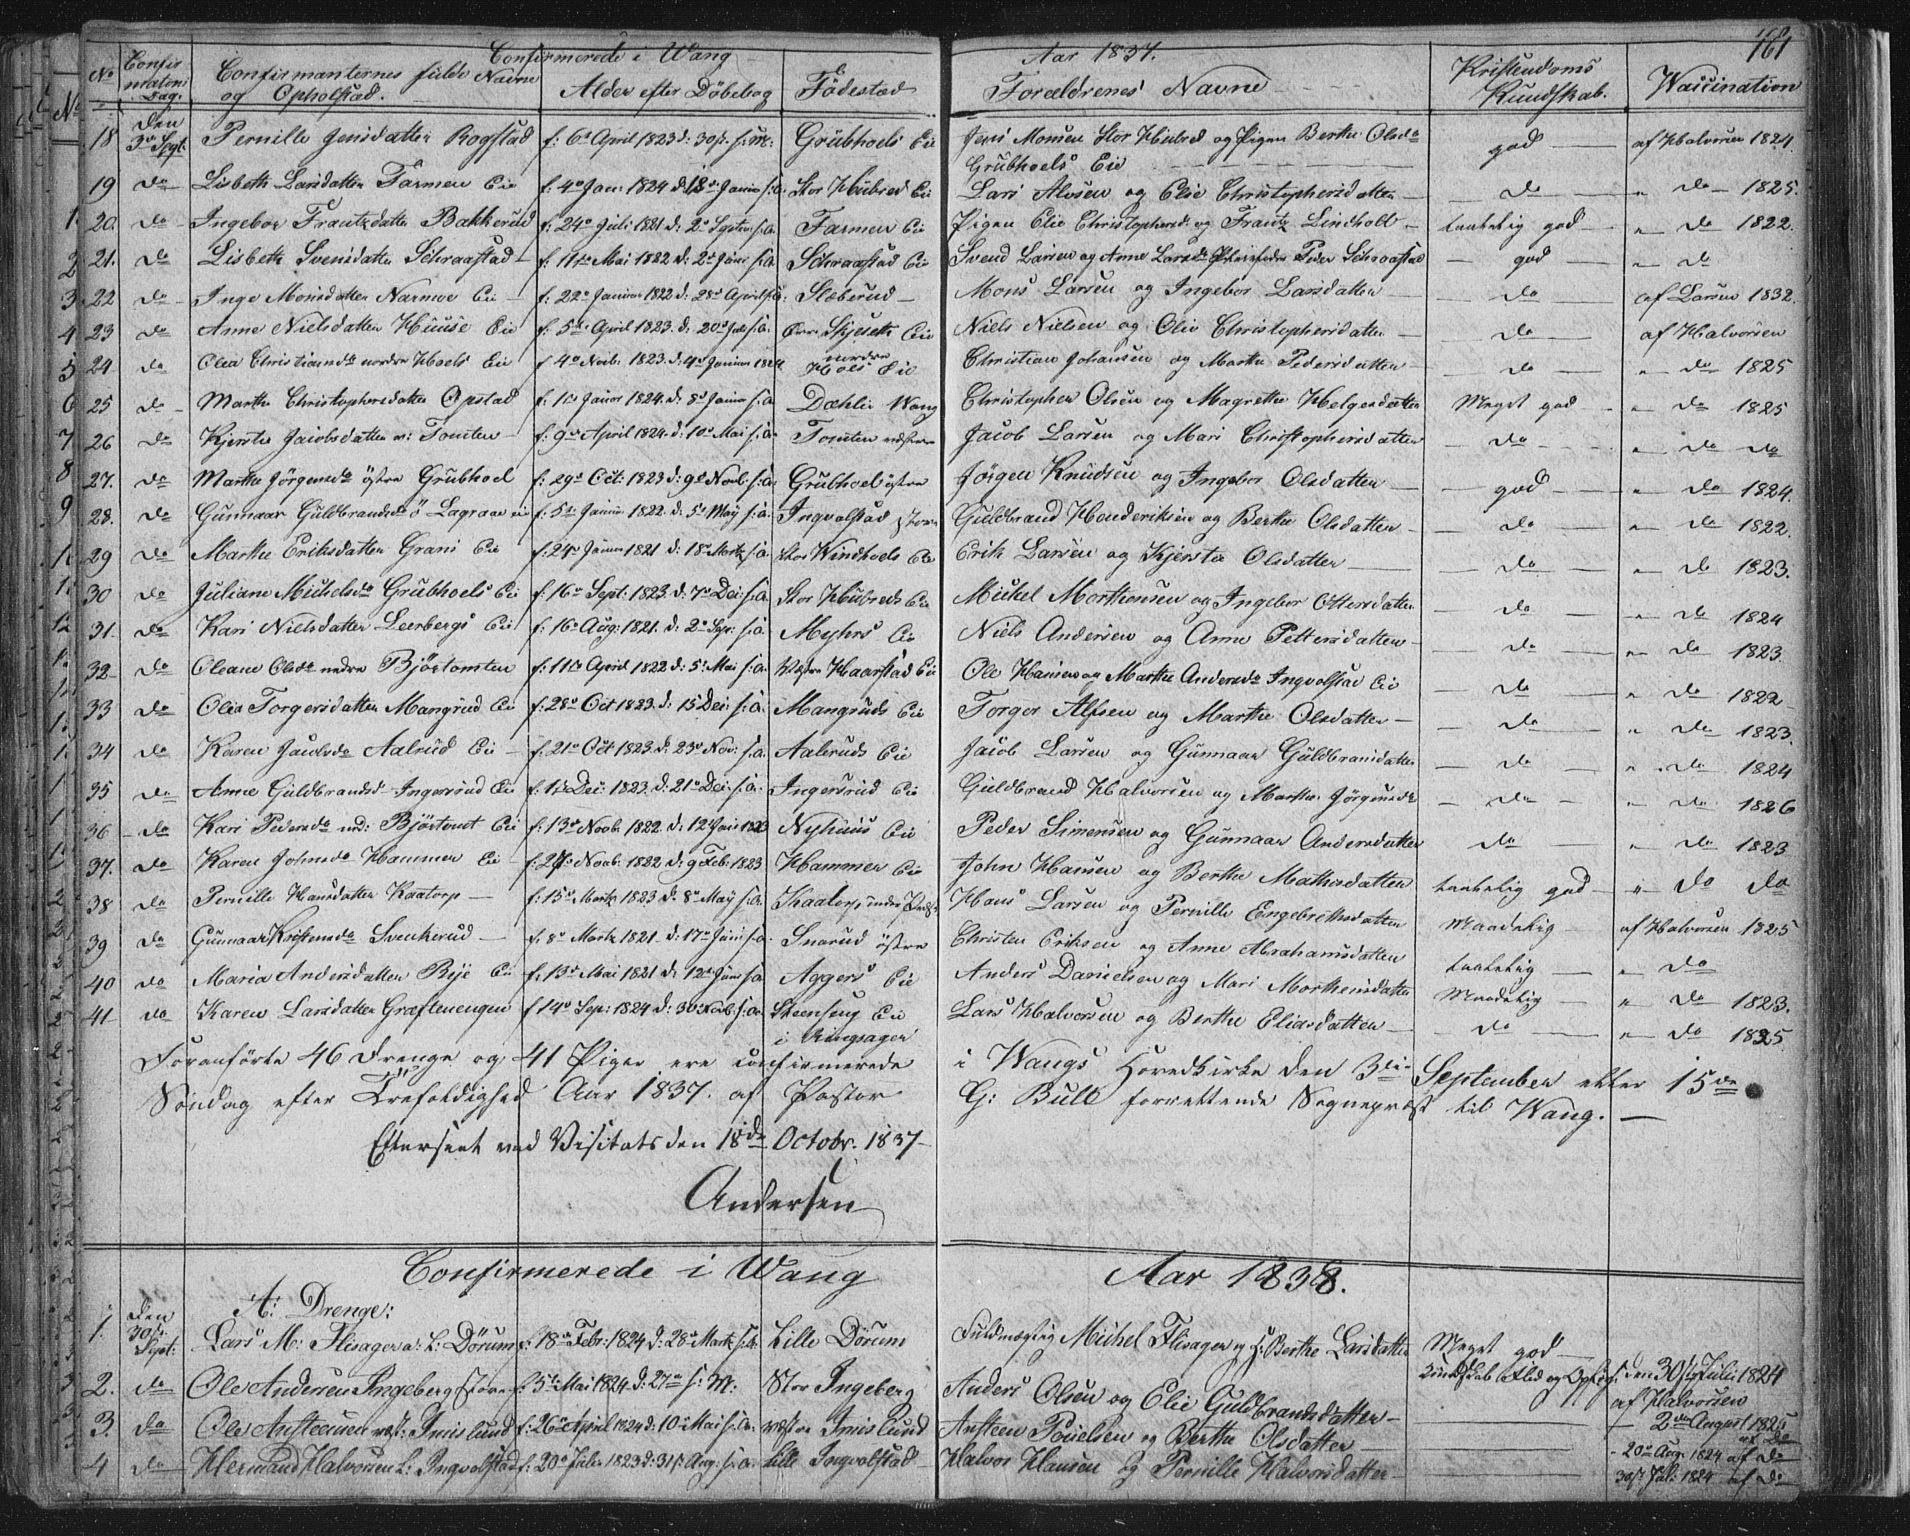 161
Confirmerede i Wang Aar 1837.
No Confirmations Dag. Confirmanternes fulde Navne og Opholstad. Alder efter Döbebog Födestæd Forældrenes Navne Kristendoms Kundskab. Waccination
18 den 3 Sept. Pernille Jensdatter Rogstad f: 6 April 1823 d: 30 s: M: Grübhoels Eie Jens Monsen Stor Hubred og Pigen Berthe Olsda Grübhoels Eie god af Halvorsen 1824.
19 do Lisbeth Larsdatter Farmen Eie f: 4 Jan: 1824 d: 18 Janu s: a: Stor Hubred Eie Lars Alvsen og Elie Christophersdatter do " do 1825.
20. do Ingebor Frantzdatter Bakkerud f: 24 Juli 1821 d: 2 Septem s: a: Farmen Eie Pigen Elie Christophersd: og Frantz Lindholt taalelig god " do 1822.
21. do Lisbeth Svensdatter Schraastad f: 11te Mai 1822 d: 2 Juni s: a: Schraastad Eie Svend Larsen og Anne Larsda Peder Schraastad god " do
22 do Inge Monsdatter Narmoe Eie f: 22 Januar 1822 d: 28 April s: a: Slæberud Mons Larsen og Ingebor Larsdatter do af Larsen 1832.
23 do Anne Nielsdatter Huuse Eie f: 5te April 1823. d: 20 s: a: Skjeseth Eie Niels Nielsen og Olie Christophersdatter do af Halvorsen
24 do Olea Christiansda nordre Hoels Eie f 4 Novb. 1823. d: 4 Januar 1824 nordre Hoels Eie Christian Johansen og Marthe Pedersdatter do " do 1825
25 do Marthe Christophersdatter Opstad f: 1 Januar 1824. d: 8 Januar s: a: Dæhlie Wang Christopher Olsen og Magrethe Helgesdatter Meget god " do 1825
26 do Kjersti Jacobsdatter v: Tomten f: 9 April 1824. d: 10 Mai s: a: Tomten vestre Jacob Larsen og Mari Christophersdatter do " do do
27. do Marthe Jörgensda östre Grübhoel f: 29 Oct: 1823 d: 9 Novb. s: a: Grübhoel östre Jörgen Knudsen og Ingebor Olsdatter god " do 1824.
28. do Gunnaar Guldbrandsda ö Lagraae Eie f: 5te Januar 1822. d: 5 May s: a: Ingvolstad store Guldbrand Henderiksen og Berthe Olsdatter do " do 1822.
29 do Marthe Eriksdatter Grani Eie f: 24 Januar 1821 d: 18 Martz s: a: Stor Windhoels Eie Erik Larsen og Kjersti Olsdatter do " do 1823.
30 do Juliane Mickelsda Grübhoels Eie f: 16 Sept: 1823 d: 7 Dec: s: a: Stor Hubreds Eie Mickel Morthensen og Ingebor Ottersdatter do " do 1824
31. do Kari Nielsdatter Leerbergs Eie f: 16 Aug: 1821. d: 2 Sep: s: a: Myhrs Eie Niels Andersen og Anne Pettersdatter do " do 1823.
32. do Oleane Olsda nedre Björtomten f: 11te April 1822 d: 5 Mai s: a: Haarstad Eie Ole Hansen og Marthe Andersda Ingvolstad Eie do " do 1822
33 do Olia Torgersdatter Mangrud Eie f: 28 Oct 1823. d: 15 Dec: s: a: Mangruds Eie Torger Alfsen og Marthe Olsdatter do " do 1823.
34 do Karen Jacobsda Aalrud Eie f: 21 Oct 1823. d: 23 Nov: s: a: Aaleruds Eie Jacob Larsen og Gunnaar Guldbransdatter do " do 1824
35 do Anne Guldbrandsd Ingersrud Eie f: 1 Dec: 1823. d: 21 Dec: s: a: Ingersrud Eie Guldbrand Halvorsen og Marthe Jörgensda do " do 1826
36 do Kari Pedersda ned: Björtomt Eie f: 13 Novb. 1822. d: 12 Jan 1823 Nyhuus Eie Peder Simensen og Gunnaar Andersdatter do " do 1823
37. do Karen Johnsda Hammer Eie f: 27 Novb: 1822 d: 9 Feb: 1823 Hammer Eie John Hansen og Berthe Mathesdatter taalelig god " do do
38 do Pernille Hansdatter Kaatorp f: 15 Martz 1823 d: 8 May s: a: Kaatorp Hans Larsen og Pernille Engebrethsdatter Maadelig af Halvorsen 1825
39 do Gunnaar Kristensda Svenkerud f: 8 Martz 1821. d: 17 Juni s: a: Snarud östre Christen Eriksen og Anne Abrahamsdatter taalelig " do
40 do Maria Andersdatter Rye Eie f: 13 Mai 1821 d: 12 Juni s: a: Aggers Eie Anders Danielsen og Mari Morthensdatter Maadelig " do 1823.
41 do Karen Larsdatter Græftenengen f 14 Sep: 1824 d: 30 Novb. s: a: Steenseng Eie i Ringsager Lars Halvorsen og Berthe Eliasdatter do " do 1825.
Foranförte 46 Drenge og 41 Piger ere confirmerede i Wangs Hovedkirke den 3die September etter 15de
Söndag efter Trefoldighed Aar 1837. af Pastor G: Bull forrettende Sognepræst til Wang.
Efterseet ved Visitats den 18de Octobr. 1837
Andersen
Confirmerede i Wang Aar 1838.
A: Drenge:
1. den 30te Sept: Lars M: Flisager a: L: Dörum f: 18 Febr: 1824 d: 28 Martz s: a: Lille Dörum Fuldmægtig Michel Flisager og H: Berthe Larsdatter Meget god Kundskab Flid og den 30te Juli 1824 af Halvorsen
2. do Ole Andersen Ingeberg store f: 5te Mai 1824 d: 27 s: M: Stor Ingeberg Anders Olsen og Elie Guldbrandsdatter 2den August 1825 af Do
3. do Ole Ansteensen vest: Imislund f: 26 April 1824 d: 10 Mai s: a: vestre Imislund Ansteen Povelsen og Berthe Olsdatter 20 Aug. 1824 af do
4 do Hermand Halvorsen L: Ingvolstad f: 20 Julii 1823 d: 31 Aug: s: a: Lille Ingvolstad Halvor Hansen og Pernille Halvorsdatter 30te Juli 1824 af Do